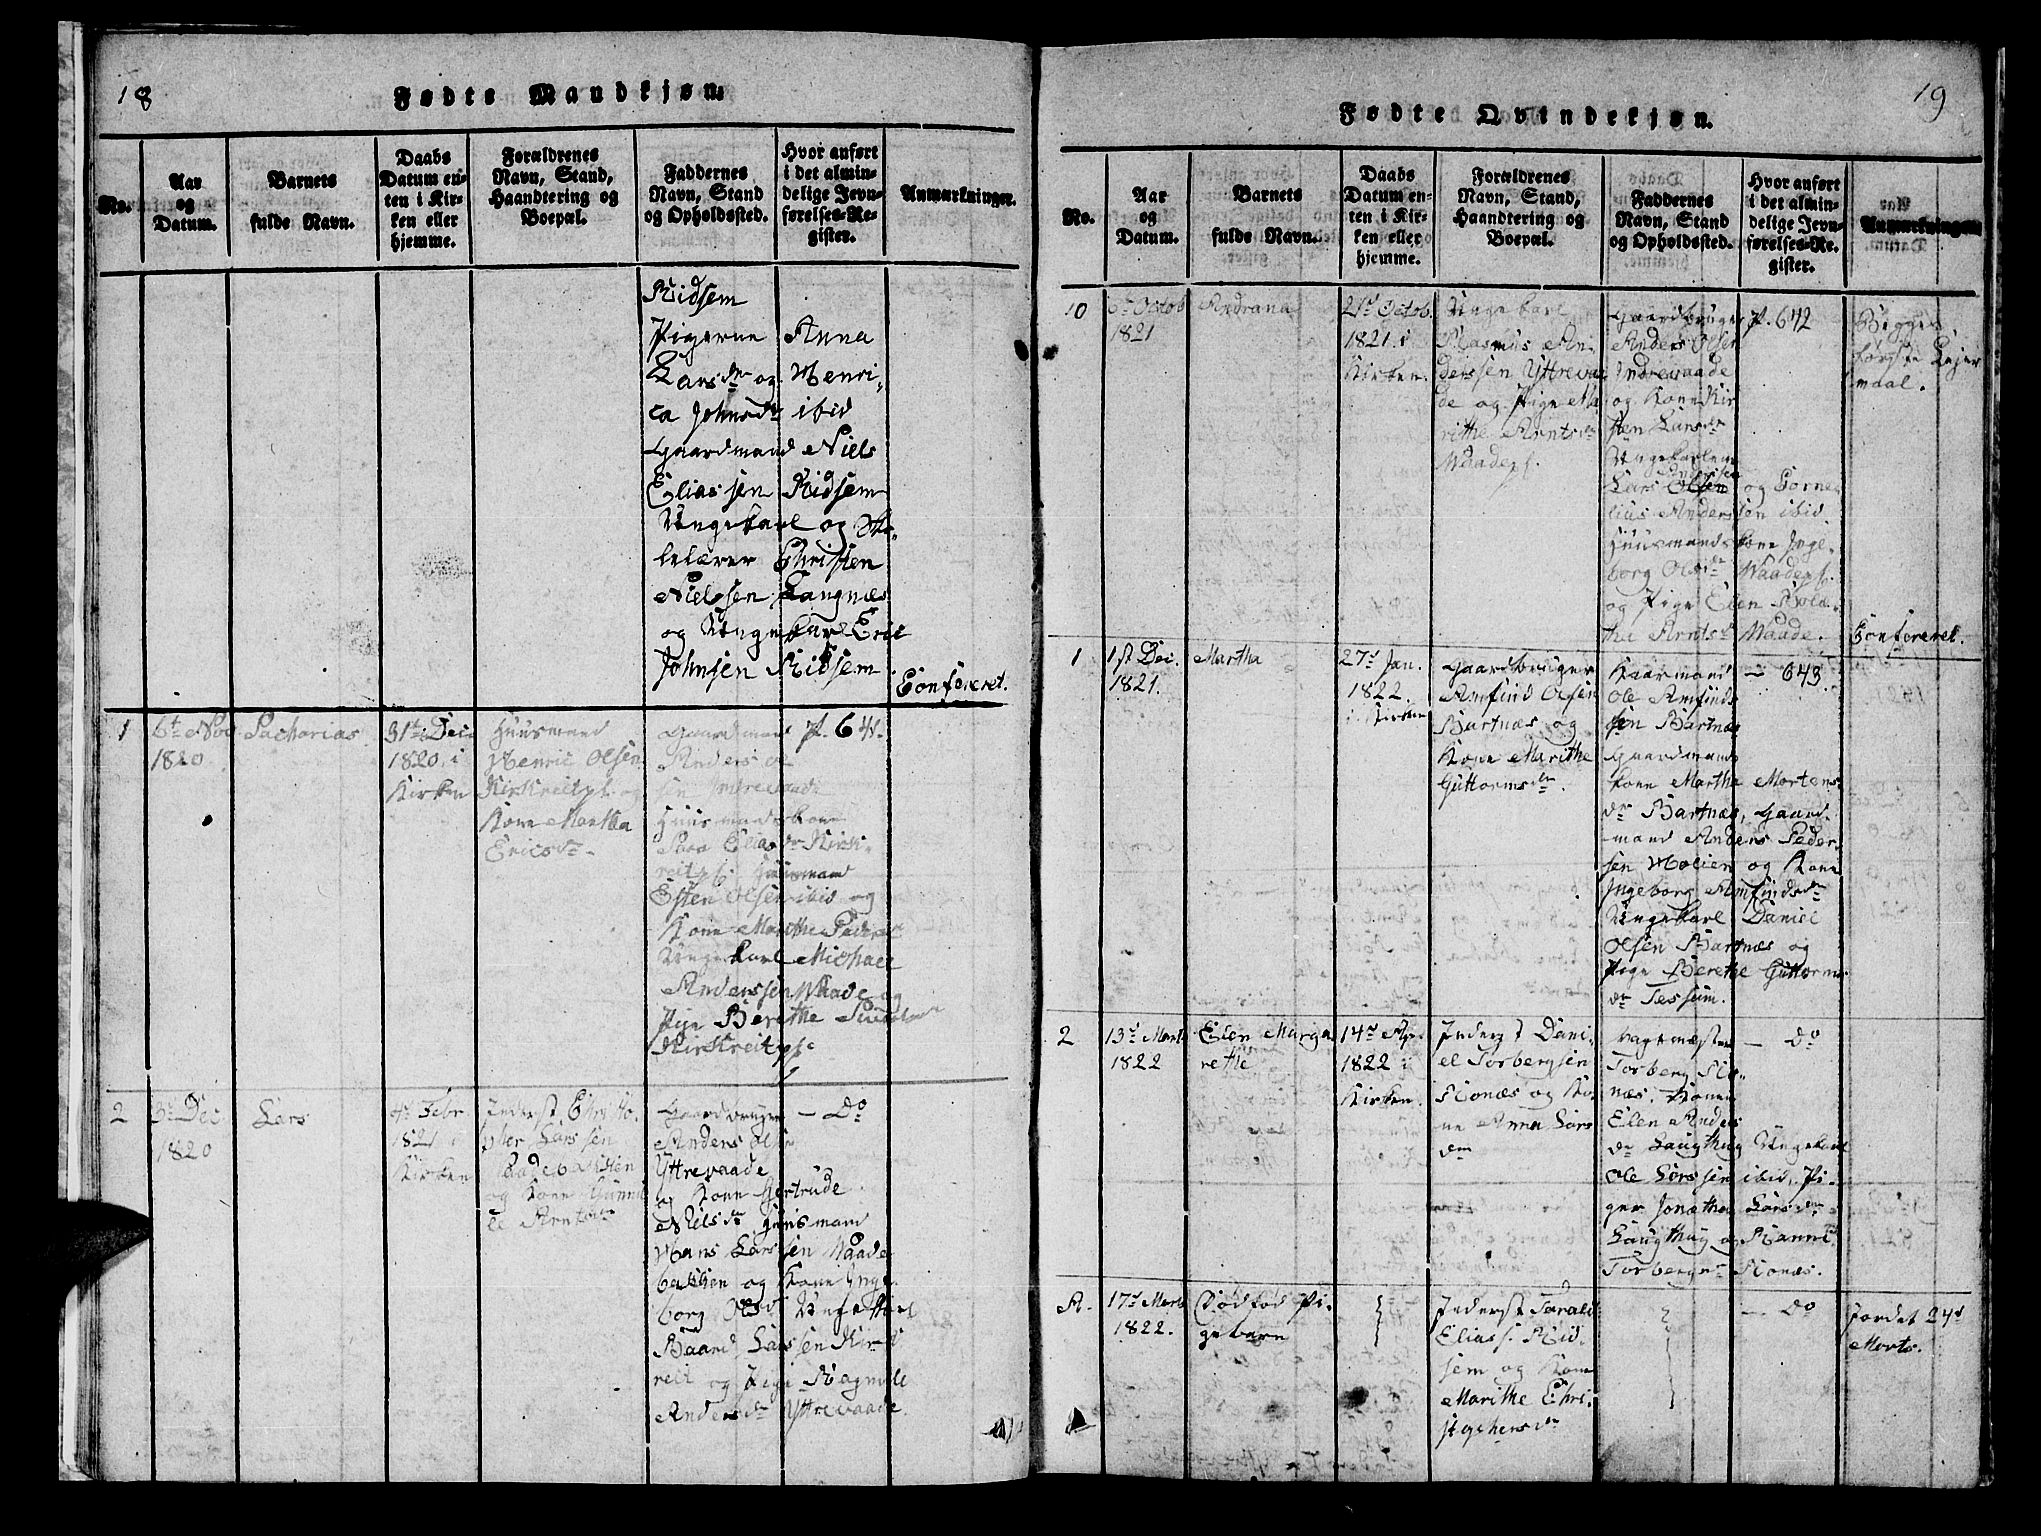 18
Fødte Mandkjøn.
No.
Aar
og
Datum.
Barnets
fulde Navn.
Daabs
Datum en-
ten i Kir-
ken eller
hjemme.
Forældrenes
Navn, Stand,
Haandtering og
Boepæl.
Faddernes
Navn, Stand
og Opholdssted.
Hvor anført
i det almin-
delige Jevn-
førelses-Re-
gister.
Anmærkninger.
Ridsem
Pigerne Anna
Larsdr og Henri-
ca Johnsdr ibid
Gaardmand Niels
Eliassen Ridsem
Ungekarl og Sko-
lelærer Christen
Nielssen Langnæs
og Ungekarl Eric
Johnsen Ridsem
Confereret.
1
6te Nov
1820
Zacharias
31te Dec
1820 i
Kirken
Huusmand
Henric Olsen
Kirkreitpl. og
Kone Martha
Ericsdr
Gaardmand
Anders Ol
sen Indrevaade
Huusmandskone
Sara Eliasdr Kirk-
reitpl. Huusmand
Esten Olsen ibid og
Kone Marithe Peders
Ungekarl Michael
Anderssen Waade og
Pige Berethe
Kirkreitpl.
P. 641.
2
3de Dec
1820
Lars
4de Febr
1821 i
Kirken
Inderst Christo-
pher Larssen
Vaadebakken
og Kone Gunnil
le Arntsdr
Gaardbruger
Anders Olsen
Yttrevaade
og Kone Gertrude
Nilsdr Huusmand
Hans Larssen Waade
bakken og Kone Inge-
borg Olsdr Ungekarl
Baard Larssen Kirk
reit og Pige Ragnile
Andersdr Yttrevaade.
— Do
19
Fødte Qvindekjøn.
No.
Aar
og
Datum.
Barnets
fulde Navn.
Daabs
Datum en-
ten i Kir-
ken eller
hjemme.
Forældrenes
Navn, Stand,
Haandtering og
Boepæl.
Faddernes
Navn, Stand
og Opholdssted.
Hvor anført
i det almin-
delige Jevn-
førelses-Re-
gister.
Anmærkninger.
10
6te Octob
1821
Andrana
21de Octob.
1821. i
Kirken.
Ungekarl
Rasmus An-
derssen Yttrevaa
de og Pige Ma
rithe Arntsdr
Waadepl.
Gaardbruger
Anders Olsen
Indrevaade
og Kone Kir
sten Larsdr
Ungekarlene
Lars Olsen og Corne-
lius Anderssen ibid
Huusmandskone Inge-
borg Olsdr Waadepl.
og Pige Elen Dole-
tha Arntsdr Waade.
P. 642
Begges
første Lejer
maal.
Confereret.
1
1st Dec.
1821.
Martha
27de Jan.
1822.
i Kirken
Gaardbruger
Amfind Olsen
Bartnæs og
Kone Marithe
Guttormsdr.
Kaarmand
Ole Amfinds
sen Bartnæs
Gaardmands
kone Martha Mortens
dr Bartnæs, Gaard-
mand Anders Peder-
sen Molien og Kone
Ingeborg Amfindsdr
Ungekarl Daniel
Olsen Bartnæs og
Pige Berethe Guttorms
dr Tessem.
— 643.
2
13de Marts
1822
Elen Marga
rethe
14de Apr.
1822 i
Kirken.
Inderst Dani-
el Torbergsen
Rones og Ko-
ne Anna Lors
dr
Vagtmester
Torberg Ro-
næs. Konen
Elen Anders
dr Laughug Ungekarl
Ole Lorssen ibid, Pi-
ger Jonetha Larsdr
Laughug og Ranni
Torbergsdr Ronæs.
— Do
A.
17de Marts
1822.
Dødfød Pi-
gebarn
Inderst Torald
Elias s. Rid-
sem og Kone
Marithe Chri-
stophersdr
— Do
Jordet 24de
Marts.